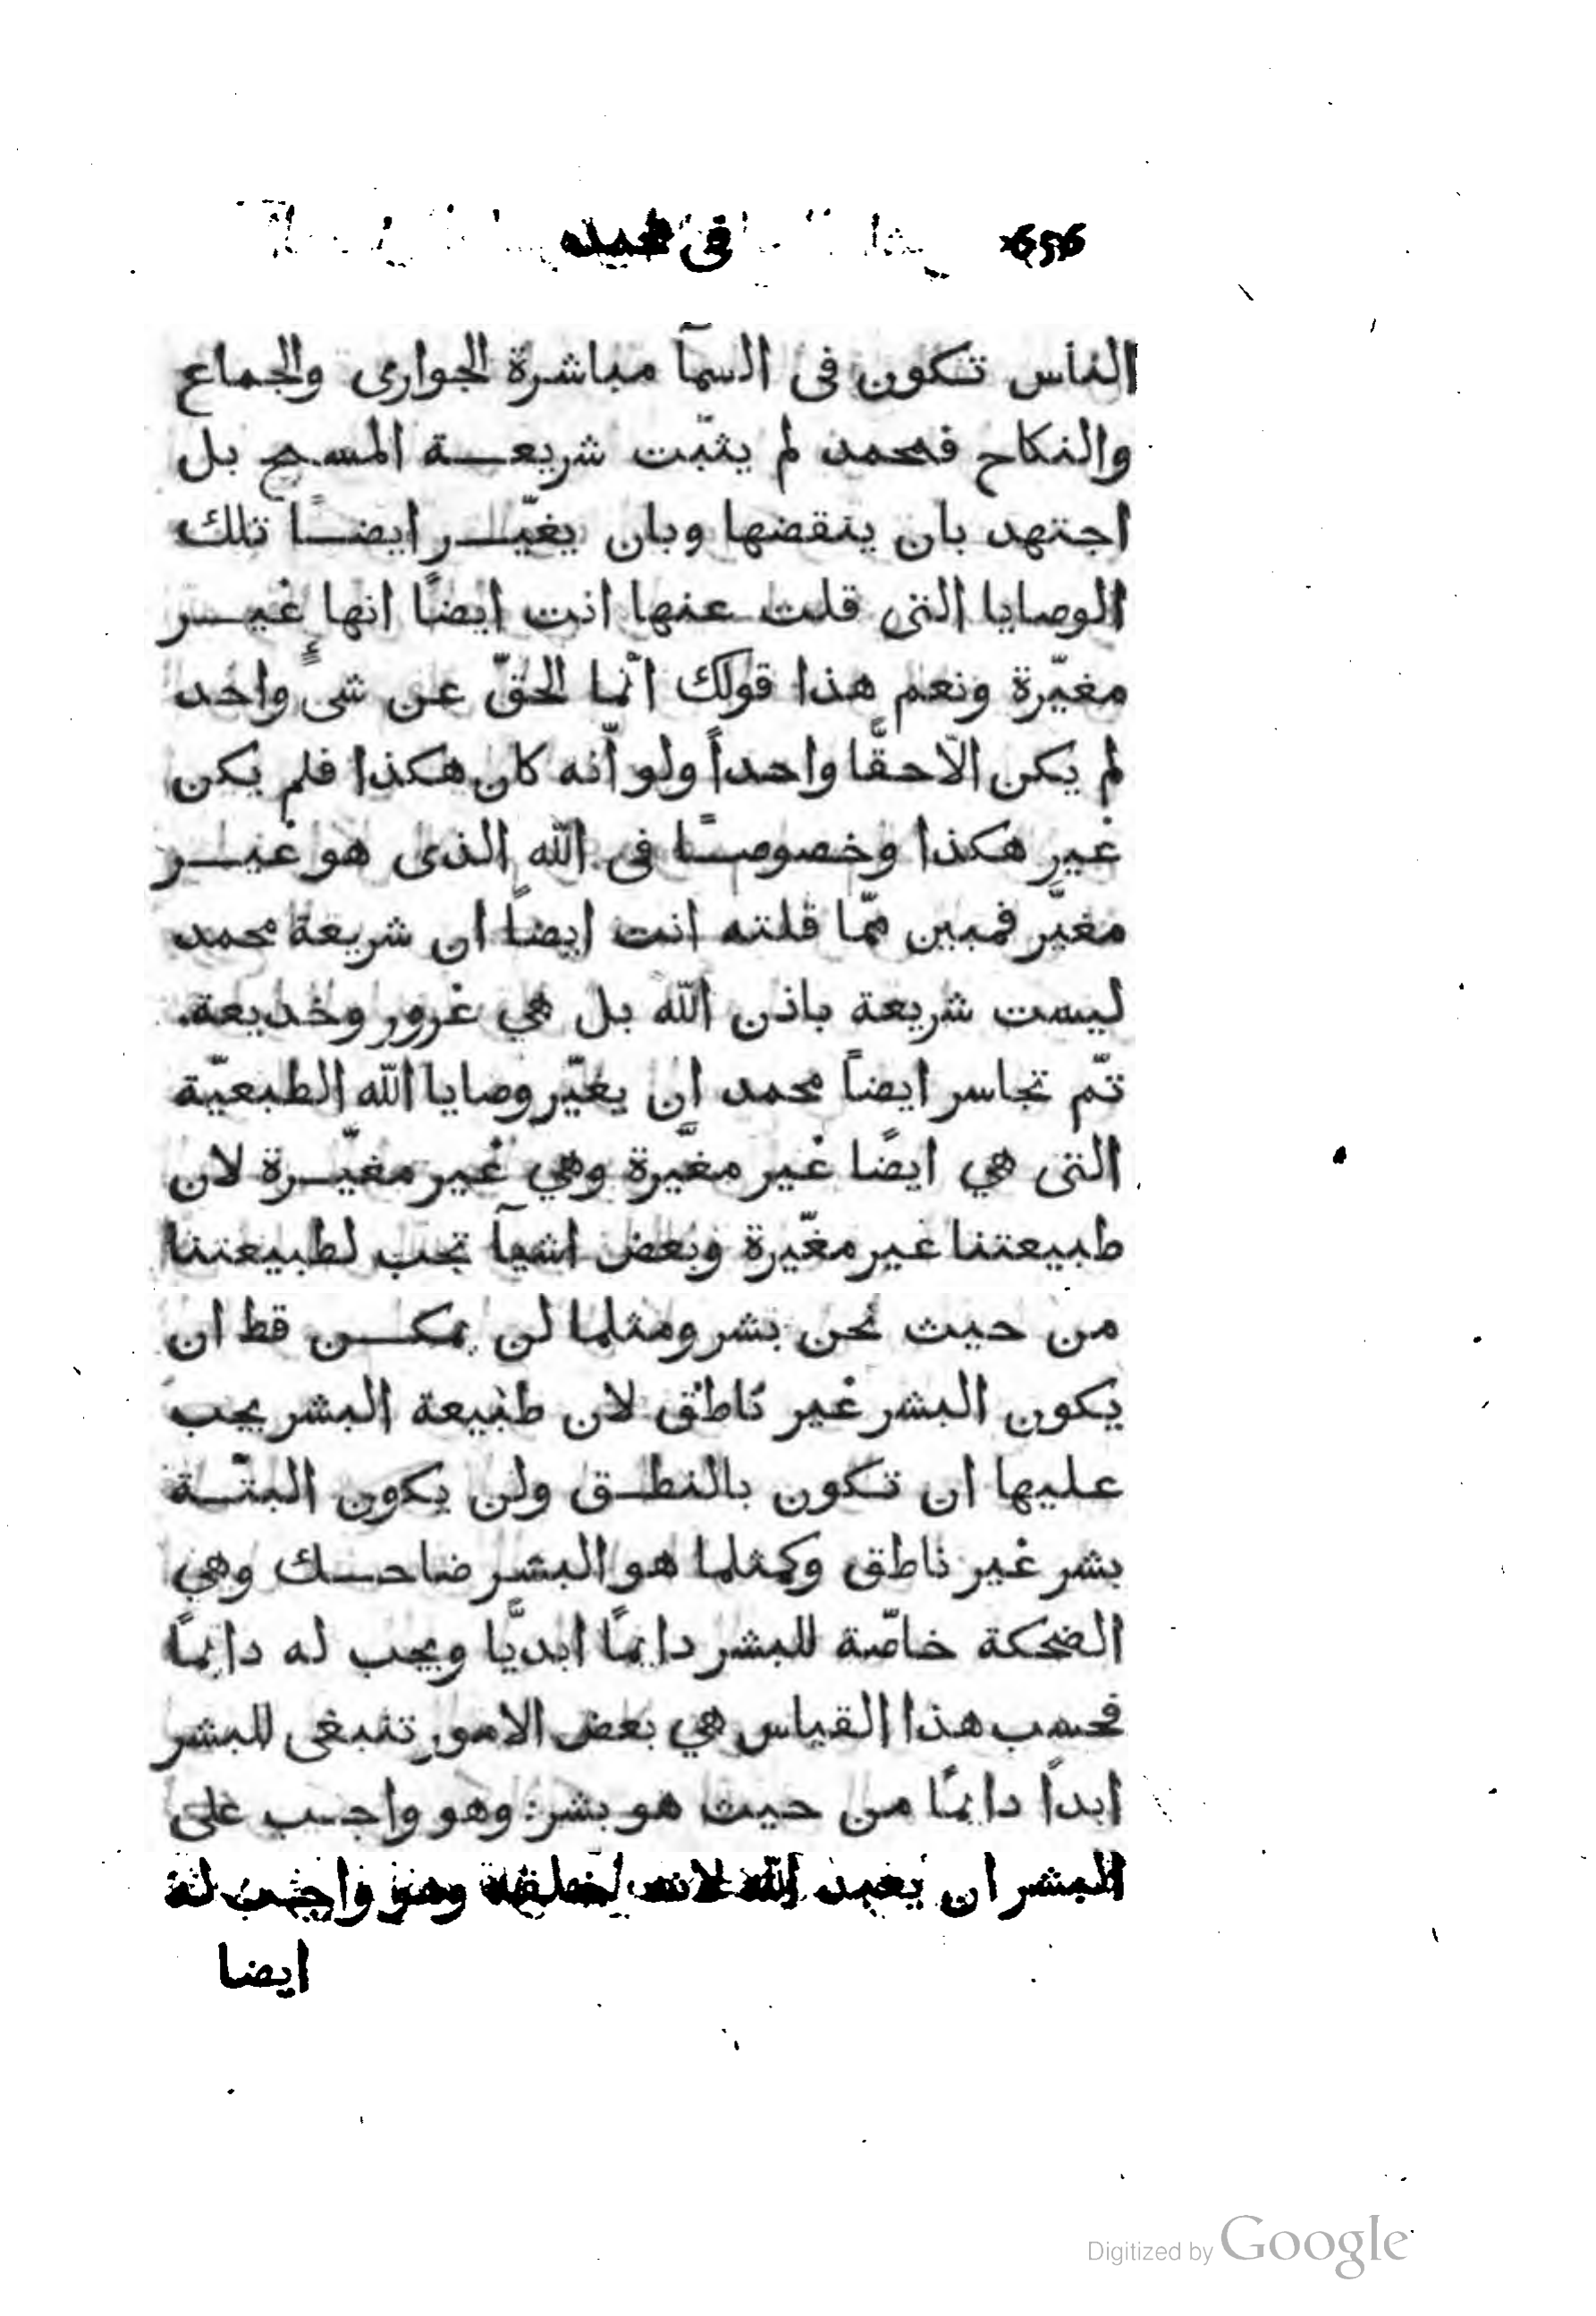 656 فى محمد
الناس تكون فى السمآ مباشرة الجوارى والجماع
والنكاح فمحمد لم يثبّت شريعة المسيح بل
اجتهد بان ينقضها وبان يغيّر ايضًا تلك
الوصايا التى قلت عنها انت ايضًا انها غير
مغيّرة ونعم هذا قولك انّما الحقّ عن شىءٍ واحد
لم يكن الّا حقًّا واحداً ولو انّه كان هكذا فلم يكن
غير هكذا وخصوصًا فى الله الذى هو غير
مغيَّر فمبين ممّا قلته انت ايضاً ان شريعة محمد
ليست شريعة باذن الله بل هي غرور وخديعة.
ثمّ تجاسر ايضاً محمد ان يغيّر وصايا الله الطبعيّة
التى هي ايضًا غير مغيَّرة وهي غير مغيّرة لان
طبيعتنا غير مغّيرة وبعض اشيآ تجب لطبيعتنا
من حيث نحن بشر ومثلما لن يمكن قط ان
يكون البشر غير ناطق لان طبيعة البشر يجب
عليها ان تكون بالنطق ولن يكون البتّة
بشر غير ناطق وكمثلما هو البشر ضاحك وهي
الضحكة خاصّة للبشر دايمًا ابديًّا ويجب له دايمًا
فحسب هذا القياس هي بعض الامور تنبغى للبشر
ابداً دايمًا من حيث هو بشر: وهو واجب على
البشر ان يعبد الله لانه خلقه وهو واجب له
ايضا
Digitized by Google